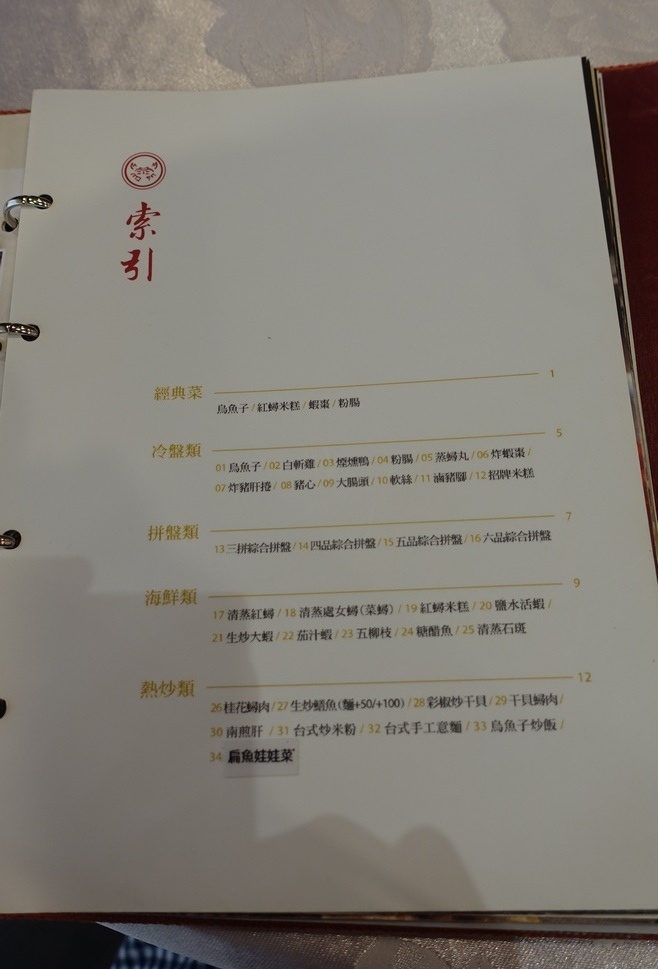 索
引
經典菜 1
烏魚子 / 紅蟳米糕 / 蝦棗 / 粉腸
冷盤類 5
01 烏魚子 / 02 白斬雞 / 03 煙燻鴨 / 04 粉腸 / 05 蒸蟳丸 / 06 炸蝦棗 /
07 炸豬肝捲 / 08 豬心 / 09 大腸頭 / 10 軟絲 / 11 滷豬腳 / 12 招牌米糕
拼盤類 7
13 三拼綜合拼盤 / 14 四品綜合拼盤 / 15 五品綜合拼盤 / 16 六品綜合拼盤
海鮮類 9
17 清蒸紅蟳 / 18 清蒸處女蟳(菜蟳) / 19 紅蟳米糕 / 20 鹽水活蝦 /
21 生炒大蝦 / 22 茄汁蝦 / 23 五柳枝 / 24 糖醋魚 / 25 清蒸石斑
熱炒類 12
26 桂花蟳肉 / 27 生炒鱔魚(麵+50/+100) / 28 彩椒炒干貝 / 29 干貝蟳肉 /
30 南煎肝 / 31 台式炒米粉 / 32 台式手工意麵 / 33 烏魚子炒飯 /
34 扁魚娃娃菜